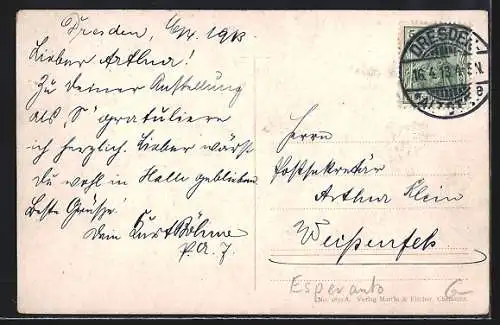 Dresden, 16/4. 1913
Lieber Arthur!
Zu deiner Anstellung
als „S" gratuliere
ich herzlich. Lieber wärst
du wohl in Halle geblieben.
Beste Grüsse!
Dein Kurt Böhme
P. A. 7.
DRESDEN
16.4.13 4-5N.
Herrn
Postsekretär
Arthur Klein
Weißenfels
Esperanto
6-
Verlag & Fischer, Chemnitz